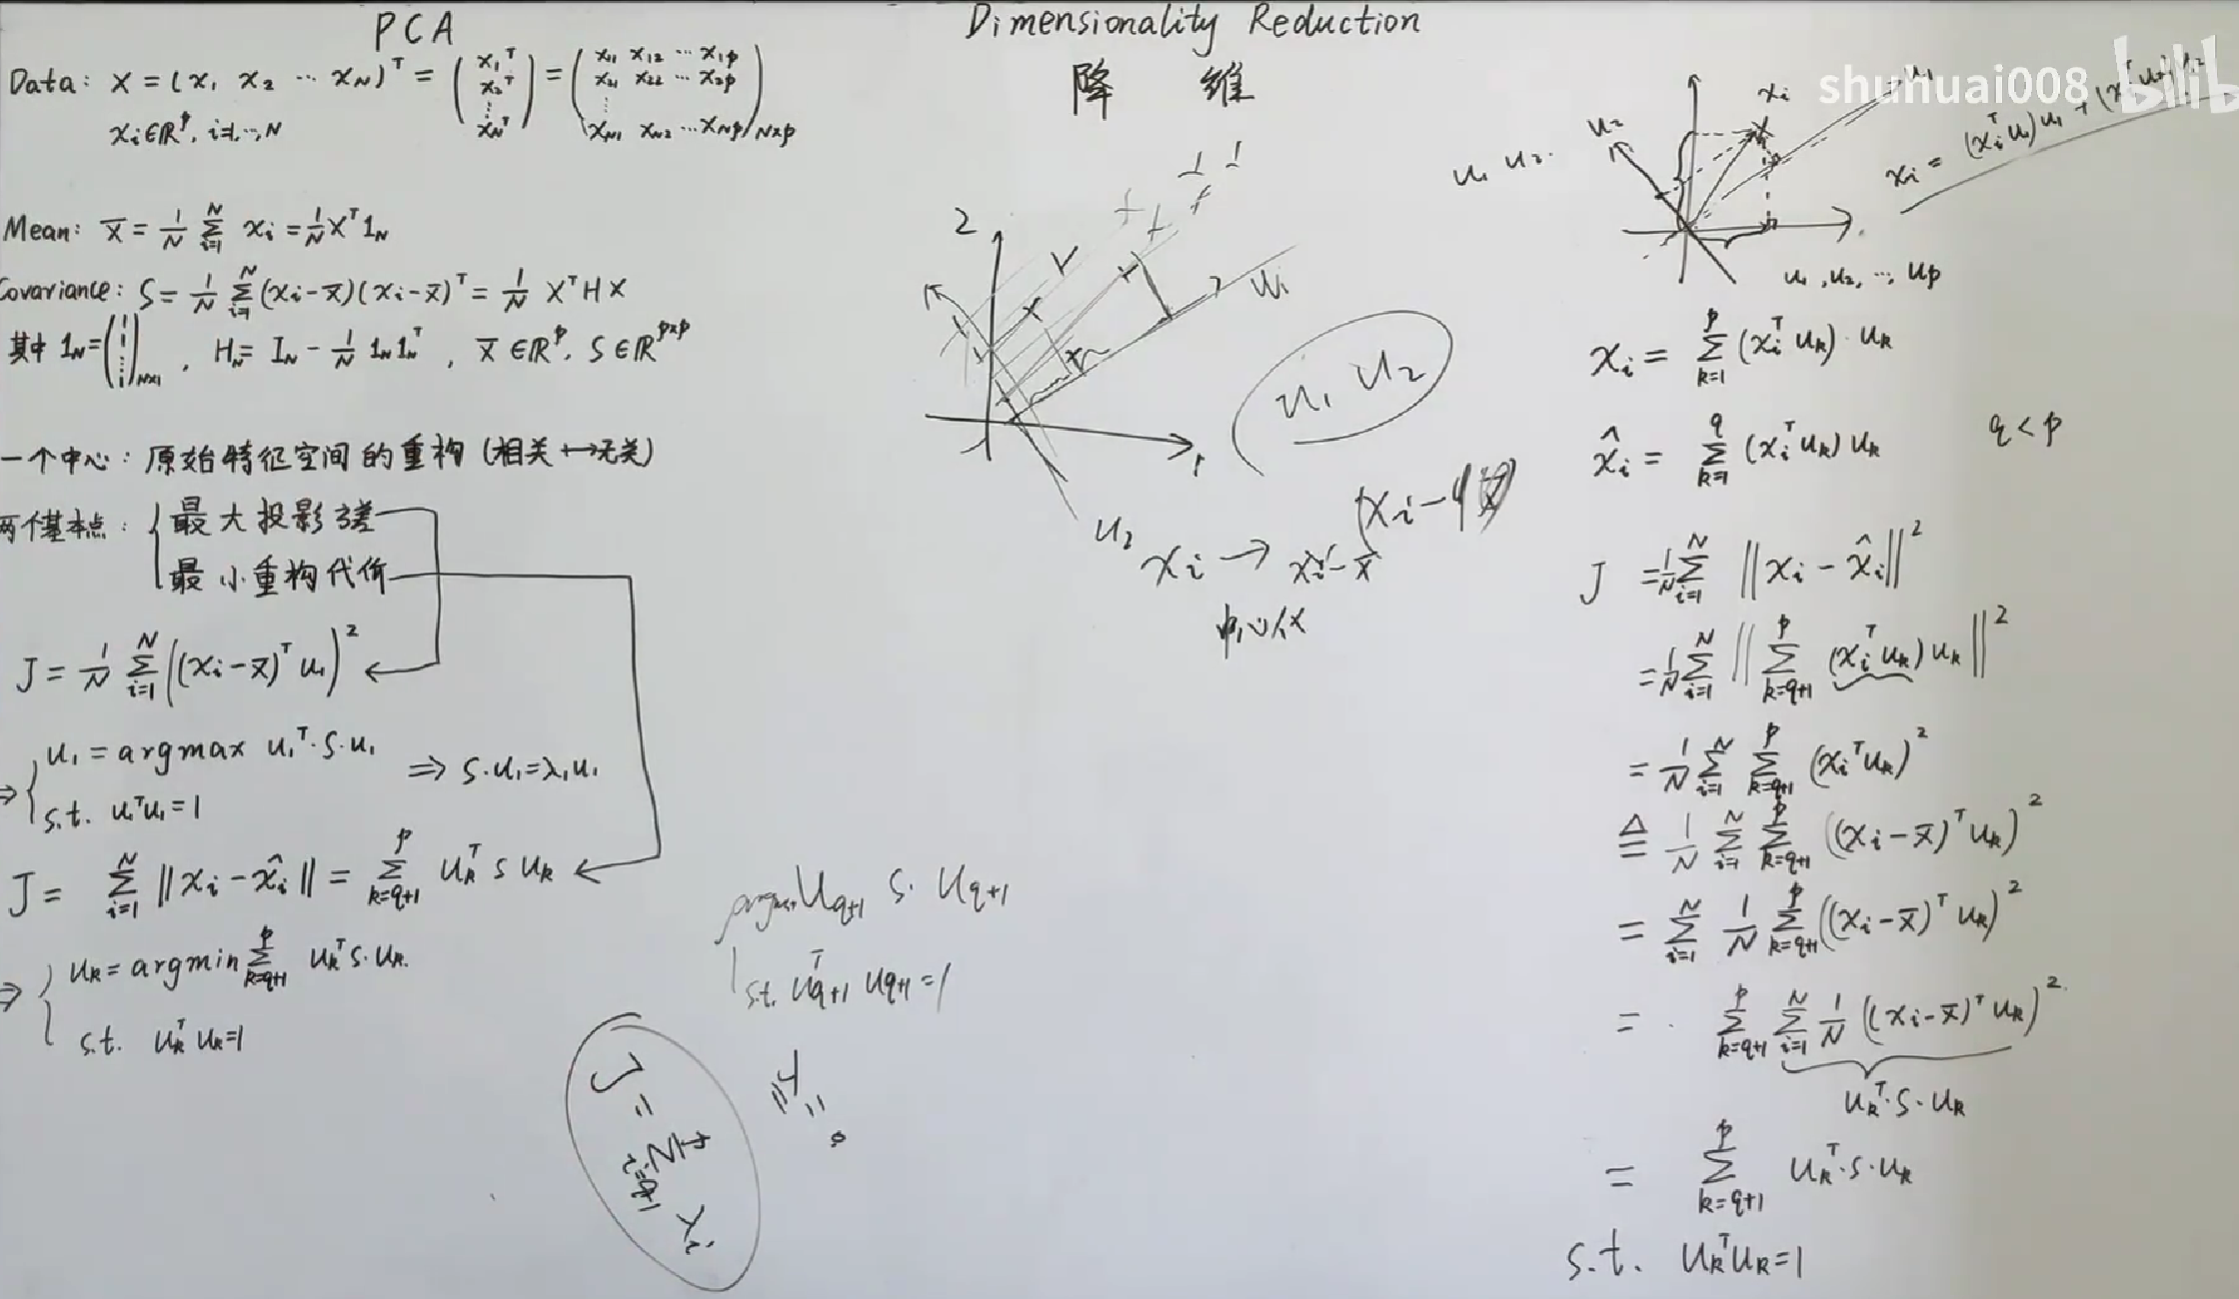 PCA
Data: X = (x₁ x₂ ⋯ x_N)ᵀ = (x₁ᵀ x₂ᵀ ⋮ x_Nᵀ) = (x₁₁ x₁₂ ⋯ x₁p
x₂₁ x₂₂ ⋯ x₂p
⋮
x_N1 x_N2 ⋯ x_Np)_N×p
xᵢ∈ℝᵖ, i=1,⋯,N
Mean: X̄ = 1/N ∑_{i=1}^N xᵢ = 1/N Xᵀ1_N
Covariance: S = 1/N ∑_{i=1}^N (xᵢ-x̄)(xᵢ-x̄)ᵀ = 1/N XᵀHX
其中 1_N = (1 ⋮ 1)_N×1 , H_N = I_N - 1/N 1_N1_Nᵀ , X̄∈ℝᵖ, S∈ℝ^{p×p}
一个中心: 原始特征空间的重构 (相关↔无关)
两个基本点: { 最大投影方差
最小重构代价
J = 1/N ∑_{i=1}^N ((xᵢ-x̄)ᵀu₁)²
⇒ { u₁ = argmax u₁ᵀ·S·u₁
s.t. u₁ᵀu₁=1
⇒ S·u₁=λ₁u₁
J = ∑_{i=1}^N ||xᵢ-x̂ᵢ|| = ∑_{k=q+1}^p u_kᵀ S u_k
⇒ { u_k = argmin ∑_{k=q+1}^p u_kᵀS·u_k.
s.t. u_kᵀu_k=1
Dimensionality Reduction
降 维
2
1
u₁
u₂
u₁ u₂
xᵢ → xᵢ-x̄
中心化
u_{q+1} S· u_{q+1}
s.t. u_{q+1}ᵀ u_{q+1}=1
J = ∑_{i=q+1}^p λᵢ
shuhuai008 bilibili
u₁ u₂.
u₂
xᵢ
u₁
xᵢ = (xᵢᵀu₁)u₁ + (xᵢᵀu₂)u₂
u₁,u₂,⋯,u_p
xᵢ = ∑_{k=1}^p (xᵢᵀu_k)·u_k
x̂ᵢ = ∑_{k=1}^q (xᵢᵀu_k)u_k q<p
J = 1/N ∑_{i=1}^N ||xᵢ-x̂ᵢ||²
= 1/N ∑_{i=1}^N ||∑_{k=q+1}^p (xᵢᵀu_k)u_k||²
= 1/N ∑_{i=1}^N ∑_{k=q+1}^p (xᵢᵀu_k)²
≜ 1/N ∑_{i=1}^N ∑_{k=q+1}^p ((xᵢ-x̄)ᵀu_k)²
= ∑_{i=1}^N 1/N ∑_{k=q+1}^p ((xᵢ-x̄)ᵀu_k)²
= ∑_{k=q+1}^p ∑_{i=1}^N 1/N ((xᵢ-x̄)ᵀu_k)²
u_kᵀ·S·u_k
= ∑_{k=q+1}^p u_kᵀ·S·u_k
s.t. u_kᵀu_k=1